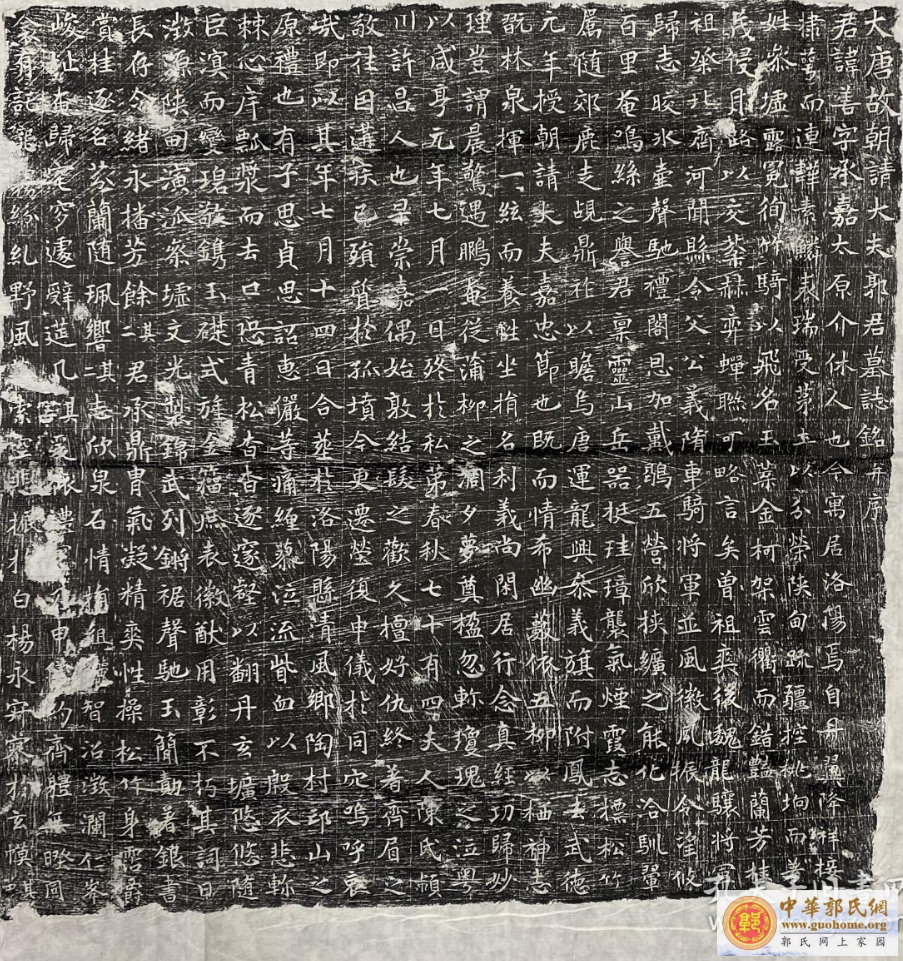 大唐故朝請大夫郭君墓誌銘并序
君諱善字承嘉太原介休人也今寓居洛陽焉自丹翼降祥接
棣萼而連輝素表瑞受茅土以分榮陝甸疏疆控桃坰而
姓參墟露冕徇竹騎以飛名玉葉金柯架雲衢而錯豔蘭芳桂
茂侵月路以交華赫弈蟬聯可略言矣曾祖奕後魏龍驤將軍
祖粲北齊河間縣令父公義隋車騎將軍並風徽夙振令望攸
歸志皎冰壺聲馳禮閣恩加戴鶡五營欣挾纊之能化洽馴翬
百里奄鳴絲之譽君稟靈山岳器挺珪璋襲氣煙霞志摽松竹
屬隨郊鹿走覘鼎祚以瞻烏唐運龍興叅義旗而附鳳去武德
元年授朝請大夫嘉忠節也既而情希幽藪依五柳以栖神志
翫林泉揮一絃而養性坐捐名利義尚閑居行念真經功歸妙
理豈謂晨驚遇鵬奄從蒲柳之凋夕夢奠楹忽軫瓊瑰之泣粵
以咸亨元年七月一日終於私第春秋七十有四夫人陳氏潁
川許昌人也早崇嘉偶始敦結髮之歡久擅好仇終著齊眉之
敬往因遘疾已殯質於孤墳今更遷塋復申儀於同穴嗚呼哀
哉即以其年七月十四日合葬於洛陽縣清風鄉陶村邙山之
原禮也有子思貞思詔惠儼等痛纏慕泣流眥血以殷衣悲軫
棘心庠瓢漿而去口恐青松杳杳逐寒壑以翻丹玄壙悠悠隨
巨溟而變碧敬鐫玉礎式旌金籀庶表徽猷用彰不朽其詞曰
濬源陝甸演派參墟文光製錦武列鏘裾聲馳玉簡勛著銀書
長存令緒永播芳餘其一君承鼎冑氣凝精爽性操松竹身霑爵
賞桂逐名芬蘭隨珮響其二志欣泉石情捐組智洽澂瀾仁峯
峻址歸定穸遽辟筵几其三爰禮申齊體無睽同
紛糺野風索空題拱木白楊永宅寥於玄幙其
中華郭氏網
www.guohome.org
郭氏网上家园